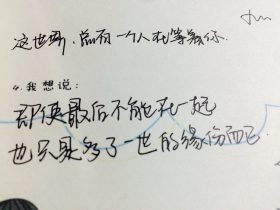 这世界,总有一个人在等着你.
4.我想说:
即使最后不能在一起
也只是多了一世的缘份而已.